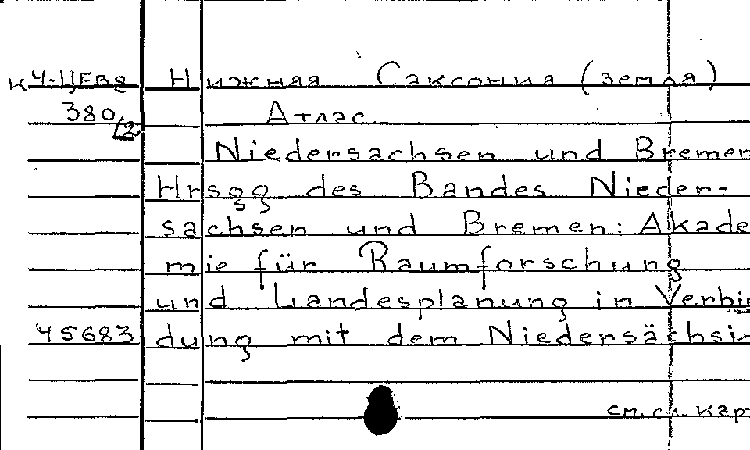 К4-ЦЕВЯ Нижняя Саксония (земля)
380/2 Атлас.
Niedersachsen und Bremen
Hrsgg des Bandes Nieder-
sachsen und Bremen: Akade
mie für Raumforschung
und Landesplanung in Verbin
45683 dung mit dem Niedersächsi
см. сл. кар